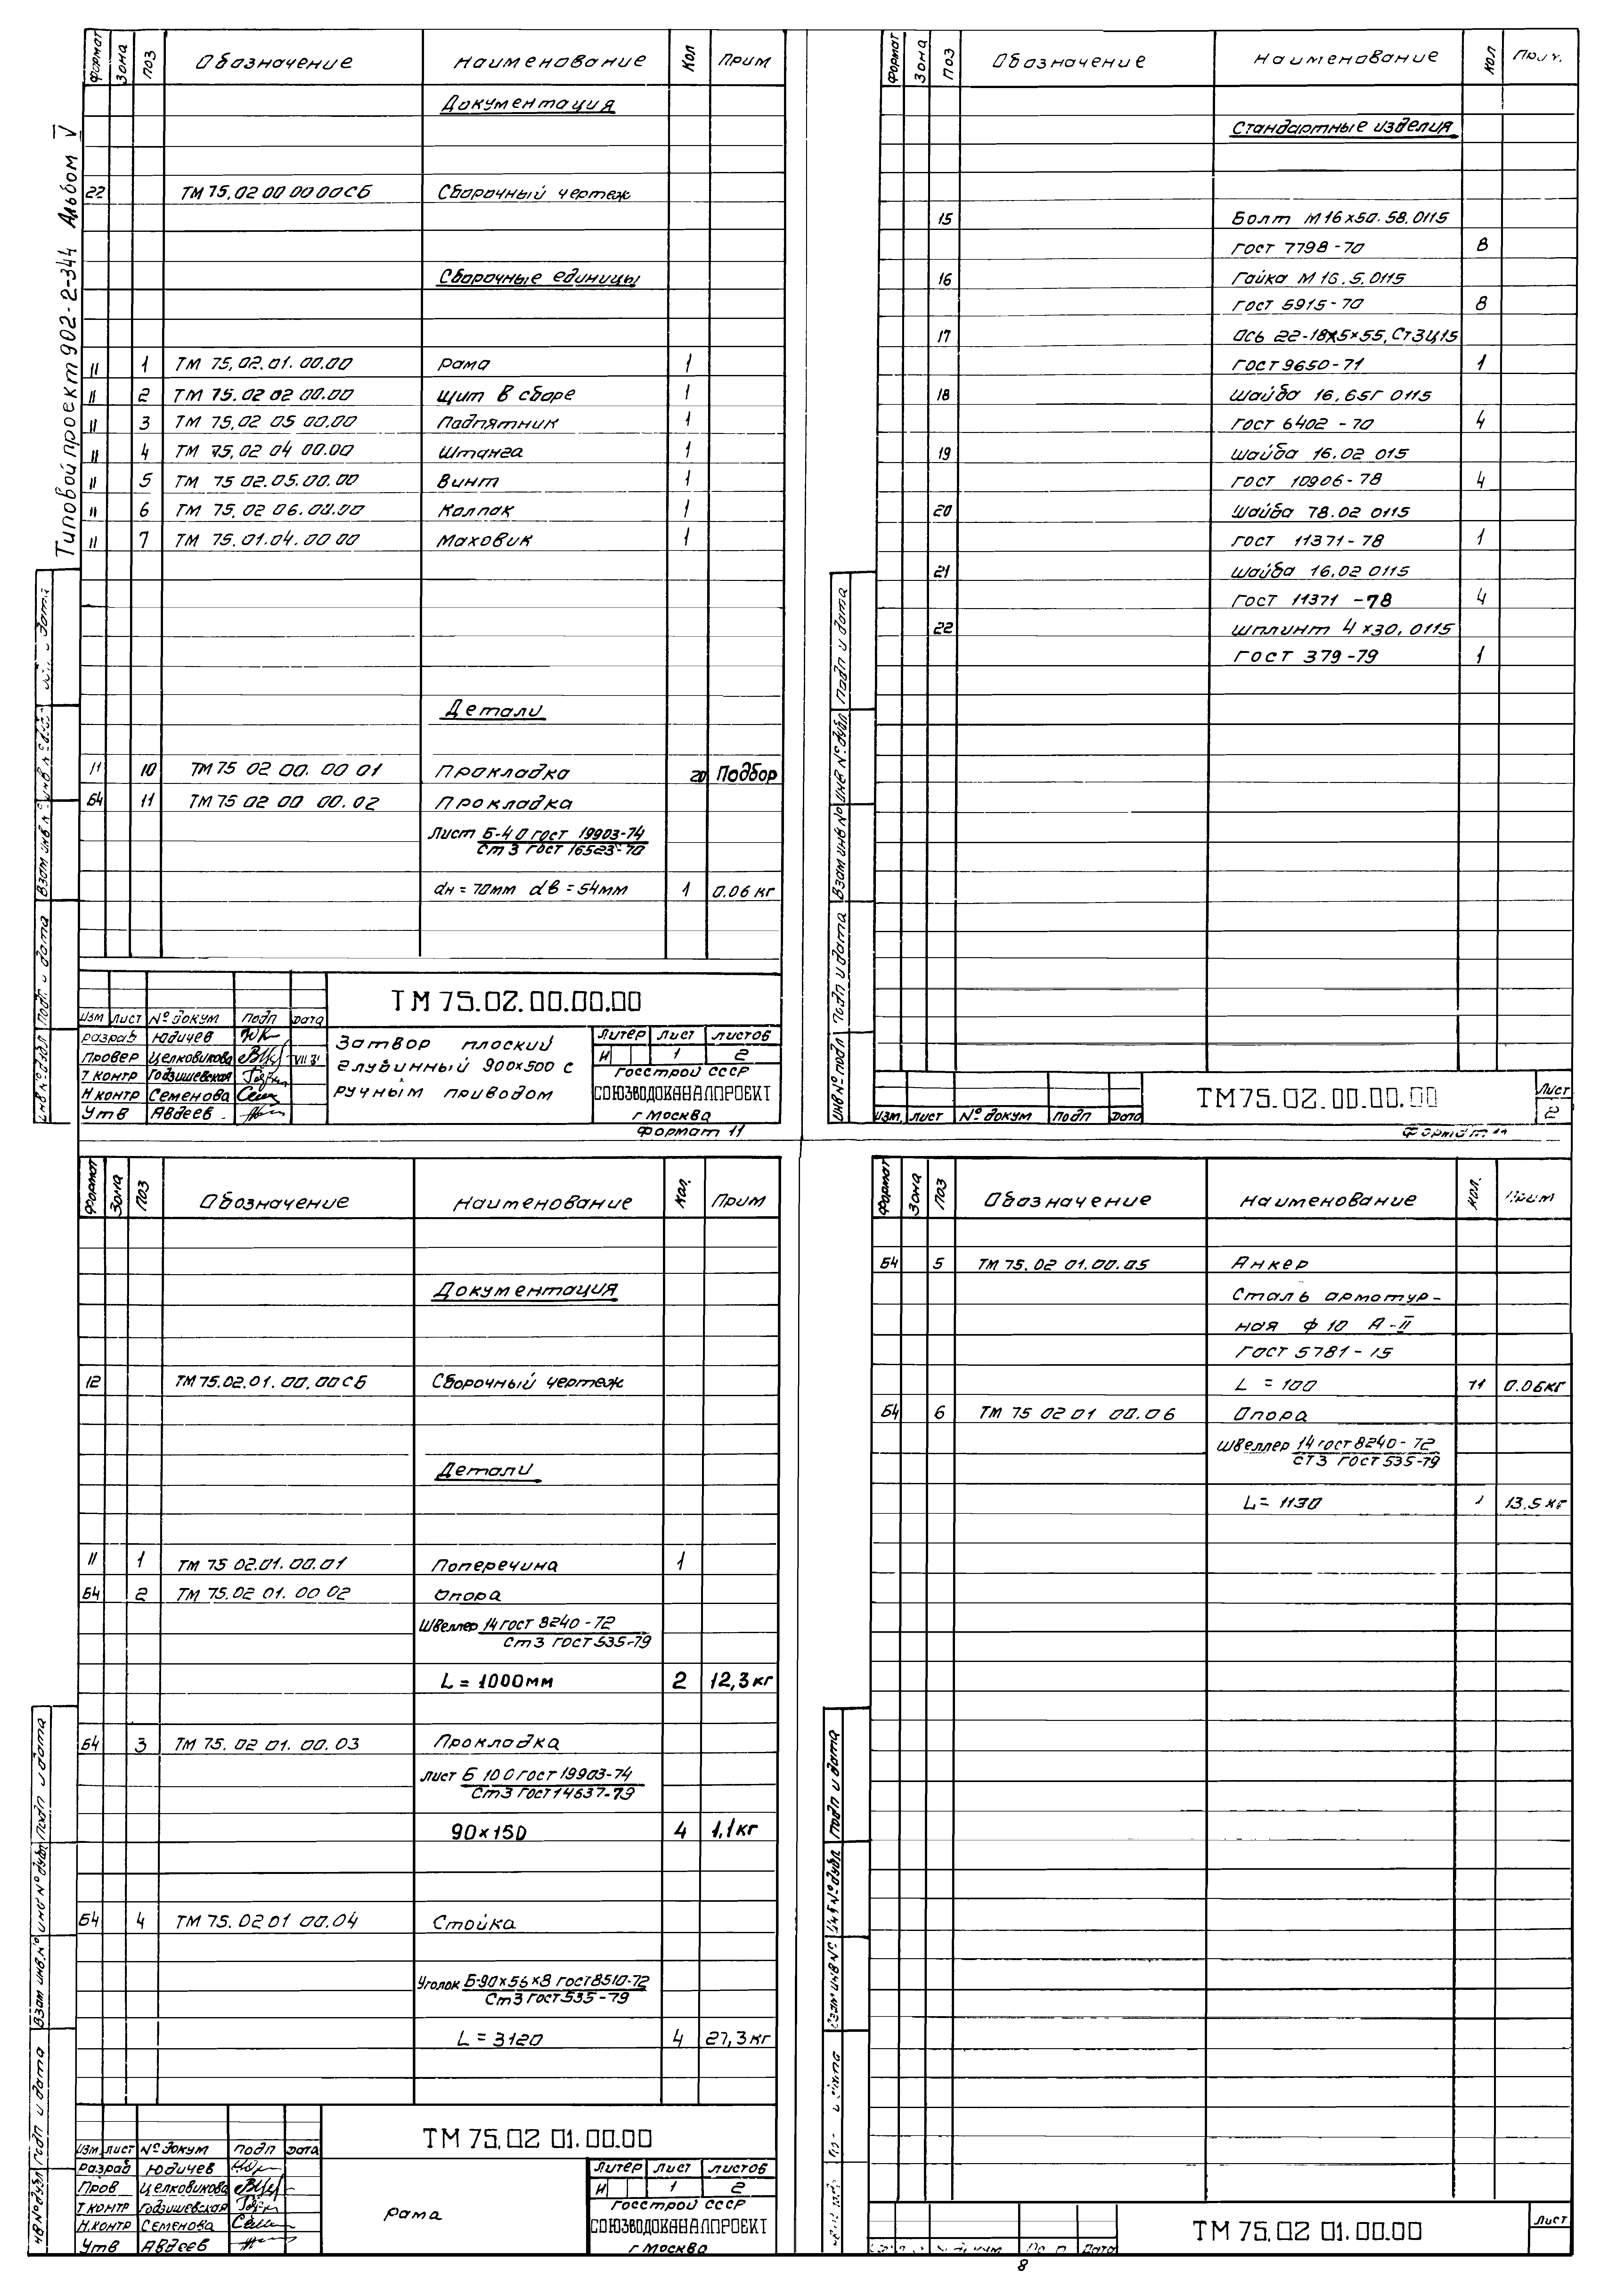 Типовой проект 902-2-344 Альбом V
Формат Зона Поз Обозначение Наименование Кол Прим
Документация
22 ТМ 75.02 00 00 00 СБ Сборочный чертеж
Сборочные единицы
11 1 ТМ 75.02.01.00.00 рама 1
11 2 ТМ 75.02 02 00.00 щит в сборе 1
11 3 ТМ 75.02 05 00.00 Подпятник 1
11 4 ТМ 75.02 04 00.00 Штанга 1
11 5 ТМ 75 02.05.00.00 Винт 1
11 6 ТМ 75.02 06.00.00 Колпак 1
11 7 ТМ 75.01.04.00 00 Маховик 1
Детали
11 10 ТМ 75 02 00. 00 01 Прокладка 20 Подбор
Б4 11 ТМ 75 02 00 00.02 Прокладка
Лист Б-4 0 гост 19903-74
Ст 3 гост 16523-70
dн = 70мм dв = 54мм 1 0.06 кг
ТМ 75.02.00.00.00
Изм Лист № докум Подп Дата
разраб Юдичев
Провер Целковикова
Т контр Годзишевская
Н контр Семенова
Утв Авдеев
Затвор плоский
глубинный 900х500 с
ручным приводом
Литер Лист Листов
И 1 2
Госстрой СССР
СОЮЗВОДОКАНАЛПРОЕКТ
г Москва
Формат 11
Инв № подл Подп и дата Взам инв №
Формат Зона Поз Обозначение Наименование Кол Прим.
Стандартные изделия
15 Болт М16х50.58.0115
гост 7798-70 8
16 Гайка М 16.5.0115
гост 5915-70 8
17 Ось 22-18х5х55, Ст3Ц15
гост 9650-71 1
18 Шайба 16.65Г 0115
гост 6402-70 4
19 шайба 16.02 015
гост 10906-78 4
20 шайба 78.02 0115
гост 11371-78 1
21 шайба 16.02 0115
гост 11371-78 4
22 шплинт 4х30.0115
гост 379-79 1
Инв № подл Подп и дата Взам инв № Инв № дубл Подп и дата
Изм. Лист № докум Подп Дата
ТМ 75.02.00.00.00
Лист
2
Формат
Формат Зона Поз Обозначение Наименование Кол. Прим
Документация
12 ТМ 75.02.01.00.00 СБ Сборочный чертеж
Детали
11 1 ТМ 75 02.01.00.01 Поперечина 1
Б4 2 ТМ 75.02 01.00 02 Опора
Швеллер 14 гост 8240-72
Ст 3 гост 535-79
L = 1000мм 2 12,3 кг
Б4 3 ТМ 75.02 01.00.03 Прокладка
лист Б 10 0 гост 19903-74
Ст3 гост 14637-79
90х150 4 1,1 кг
Б4 4 ТМ 75.02 01 00.04 Стойка
Уголок Б-90х56х8 гост 8510-72
Ст3 гост 535-79
L = 3120 4 27,3 кг
ТМ 75.02 01.00.00
Изм. Лист № докум Подп Дата
разраб Юдичев
Пров Целковикова
Т контр Годзишевская
Н.контр Семенова
Утв Авдеев
рама
Литер Лист Листов
И 1 2
Госстрой СССР
СОЮЗВОДОКАНАЛПРОЕКТ
г Москва
Подп и дата Взам инв.№ Инв № дубл Подп и дата
Формат Зона Поз Обозначение Наименование Кол. Прим
Б4 5 ТМ 75.02 01.00.05 Анкер
Сталь арматур-
ная ф 10 А-II
гост 5781-15
L = 100 11 0.06кг
Б4 6 ТМ 75 02 01 00.06 Опора
Швеллер 14 гост 8240-72
СТ3 гост 535-79
L = 1130 1 13,5 кг
Взам инв № Инв № дубл Подп и дата
Дата
ТМ 75.02 01.00.00
Лист
8